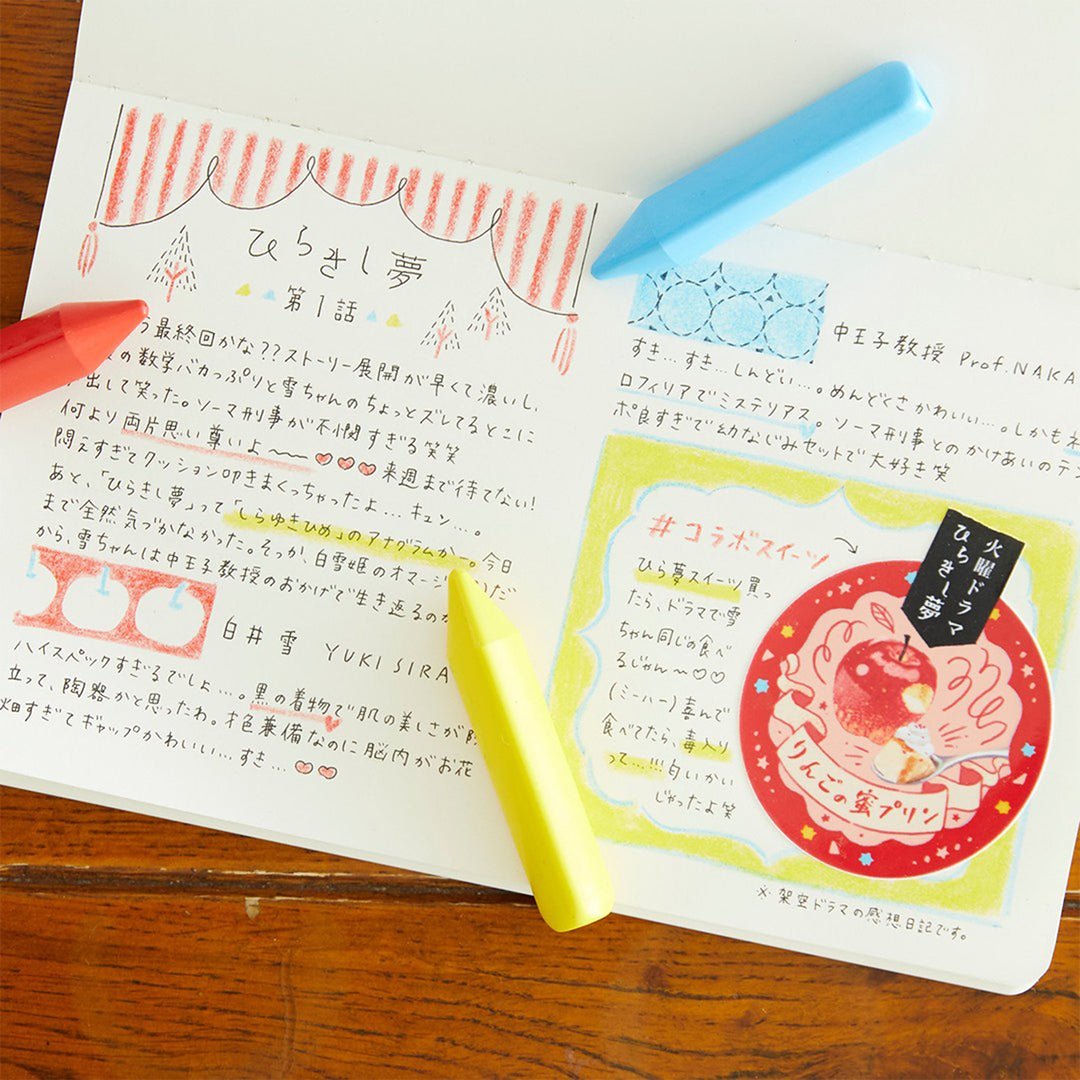 ひらきし夢
第1話
う最終回かな??ストーリー展開が早くて濃いし、
の数学バカっぷりと雪ちゃんのちょっとズレてるとこに
出して笑った。ソーマ刑事が不憫すぎる笑笑
何より両片思い尊いよ〜〜♡♡♡来週まで待てない!
悶えすぎてクッション叩きまくっちゃったよ…キュン…。
あと、「ひらきし夢」って「しらゆきひめ」のアナグラムかー。今日
まで全然気づかなかった。そっか、白雪姫のオマージ だ
から、雪ちゃんは中王子教授のおかげで生き返るのか
白井 雪 YUKI SIRA
ハイスペックすぎるでしょ…。黒の着物で肌の美しさが
立って、陶器かと思ったわ。才色兼備なのに脳内がお花
畑すぎてギャップかわいい…すき…♡♡
中王子教授 Prof.NAKA
すき…すき…しんどい…。めんどくさかわいい…。しかもネ
ロフィリアでミステリアス。ソーマ刑事とのかけあいのテン
ポ良すぎで幼なじみセットで大好き笑
#コラボスイーツ
ひら夢スイーツ買っ
たら、ドラマで雪
ちゃん同じの食べ
るじゃん〜♡♡
(ミーハー)喜んで
食べてたら、毒入り
って…!!!匂いかい
じゃったよ笑
火曜ドラマ
ひらきし夢
りんごの蜜プリン
※架空ドラマの感想日記です。